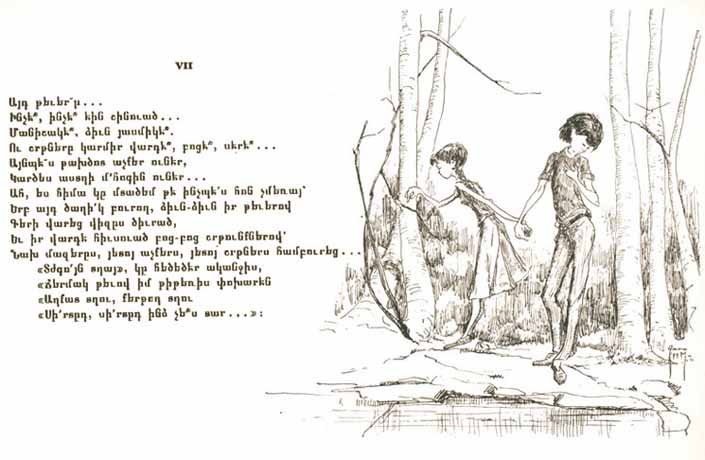 VII
Այդ թեւեր՜ը...
Ինչէ՞, ինչէ՞ էին շինուած...
Մանիշակէ՞, ձիւն յասմիկէ՞.
Ու շրթները կարմիր վարդէ՞, բոցէ՞, սէրէ՞...
Այնպէ՜ս թախծոտ աչքեր ունէր,
Կարծես աստղի մ՚հոգին ունէր...
Ահ, ես հիմա կը մտածեմ թէ ինչպէ՜ս հոն չմեռայ՝
Երբ այդ ծաղի՜կ բուրող, ձիւն-ձիւն իր թեւերով
Գերի վարեց վիզըս ծիւրած,
Եւ իր վարդէ հիւսուած բոց-բոց շրթունքներով՝
Նախ մազերըս, յետոյ աչքերս, յետոյ շրթներս համբուրեց...
«Տժգո՜յն տղայ», կը հեծեծէր ականջիս,
«Ճերմակ թեւով իմ թիթեռիս փոխարէն
«Աղքատ տղու, քերթող տղու
«Սի՛րտըդ, սի՛րտըդ ինծ չե՞ս տար...»: